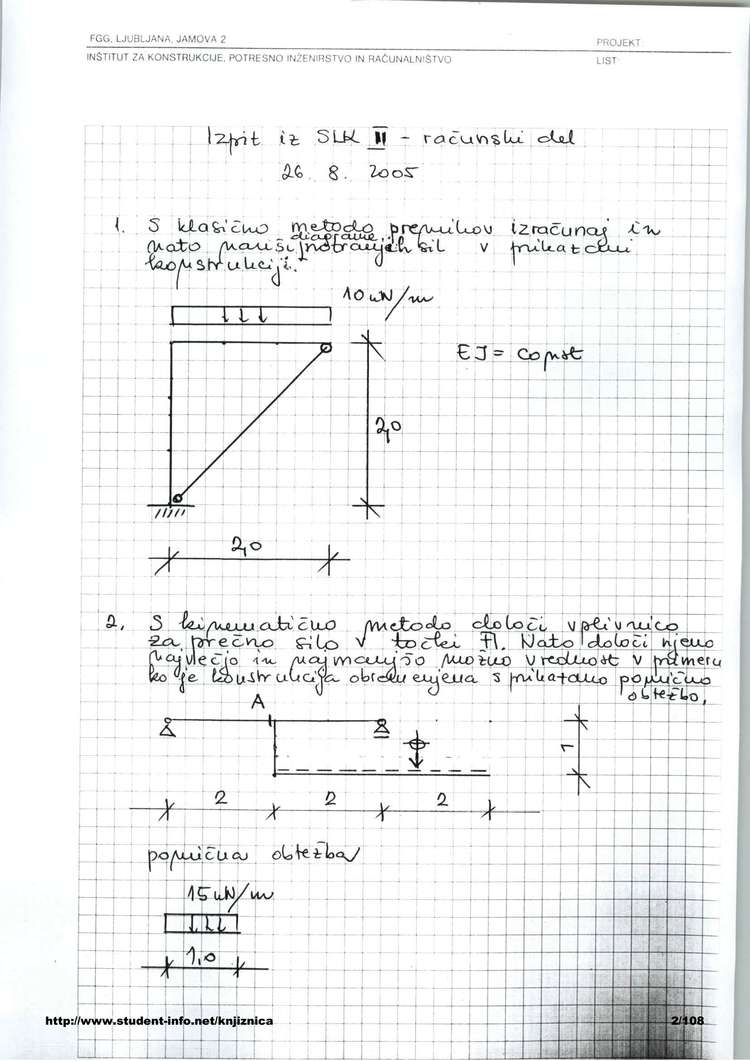 FGG, LJUBLJANA, JAMOVA 2
PROJEKT
INŠTITUT ZA KONSTRUKCIJE, POTRESNO INŽENIRSTVO IN RAČUNALNIŠTVO
LIST:
Izpit iz SLK II - računski del
26. 8. 2005
1. S klasično metodo premikov izračunaj in
nato nariši diagrame notranjih sil v prikazani
konstrukciji.
10 kN/m
EJ = const
2,0
2,0
2. S kinematično metodo določi vplivnico
za prečno silo v točki A. Nato določi njeno
največjo in najmanjšo možno vrednost v primeru
ko je konstrukcija obremenjena s prikazano pomično
obtežbo.
A
1
2 2 2
pomična obtežba
15 kN/m
1,0
http://www.student-info.net/knjiznica
2/108